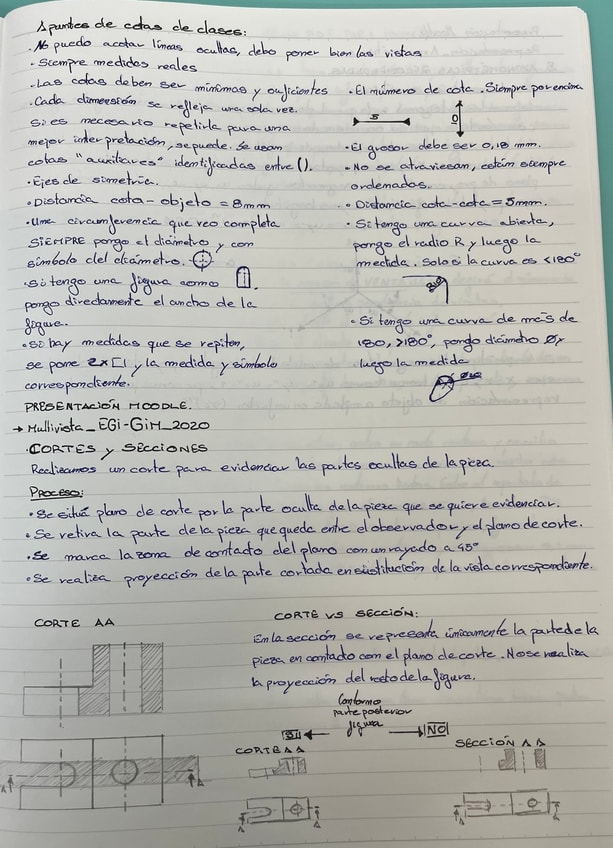 Apuntes de cotas de clases:
· No puedo acotar líneas ocultas, debo poner bien las vistas
· Siempre medidas reales
· Las cotas deben ser mínimas y suficientes
· Cada dimensión se refleja una sola vez.
Si es necesario repetirla para una
mejor interpretación, se puede. Se usan
cotas "auxiliares" identificadas entre ().
· Ejes de simetría.
· Distancia cota - objeto = 8mm
· Una circumferencia que veo completa
SIEMPRE pongo el diámetro y con
símbolo del diámetro.
· Si tengo una figura como
pongo directamente el ancho de la
figura.
· Si hay medidas que se repiten,
se pone 2x[] y la medida y símbolo
correspondiente.
· El número de cota. Siempre por encima
5
· El grosor debe ser 0,18 mm.
· No se atraviesan, están siempre
ordenadas.
· Distancia cota-cota = 5mm.
· Si tengo una curva abierta,
pongo el radio R y luego la
medida. Solo si la curva es <180°
· Si tengo una curva de más de
180, >180°, pongo diámetro Ø y
luego la medida
PRESENTACIÓN MOODLE.
→ Multivista_EGI-GIM_2020
· CORTES y SECCIONES
Realizamos un corte para evidenciar las partes ocultas de la pieza.
PROCESO:
· Se situá plano de corte por la parte oculta de la pieza que se quiere evidenciar.
· Se retira la parte de la pieza que queda entre el observador y el plano de corte.
· Se marca la zona de contacto del plano con un rayado a 45°
· Se realiza proyección de la parte cortada en sustitución de la vista correspondiente.
CORTE AA
A A
CORTE VS SECCIÓN:
En la sección se representa únicamente la parte de la
pieza en contacto con el plano de corte. No se realiza
la proyección del resto de la figura.
Contorno
parte posterior
figura
SI ← → NO
CORTE AA
A A
SECCIÓN AA
A A